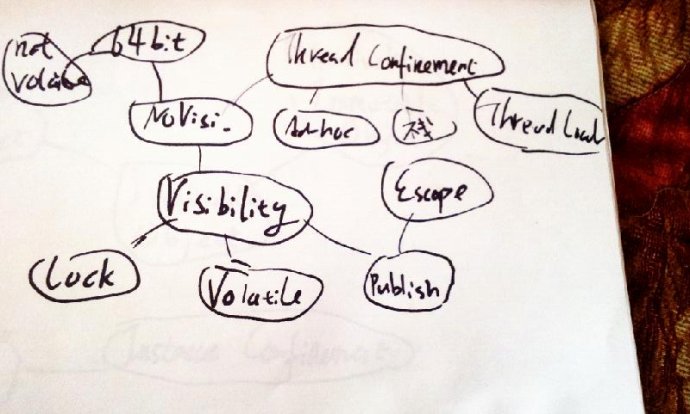 not
volatile
64bit
Thread Confinement
NoVisi.
Ad-hoc
栈
Thread Local
Visibility
Escape
Lock
Volatile
Publish
Instance Confinement